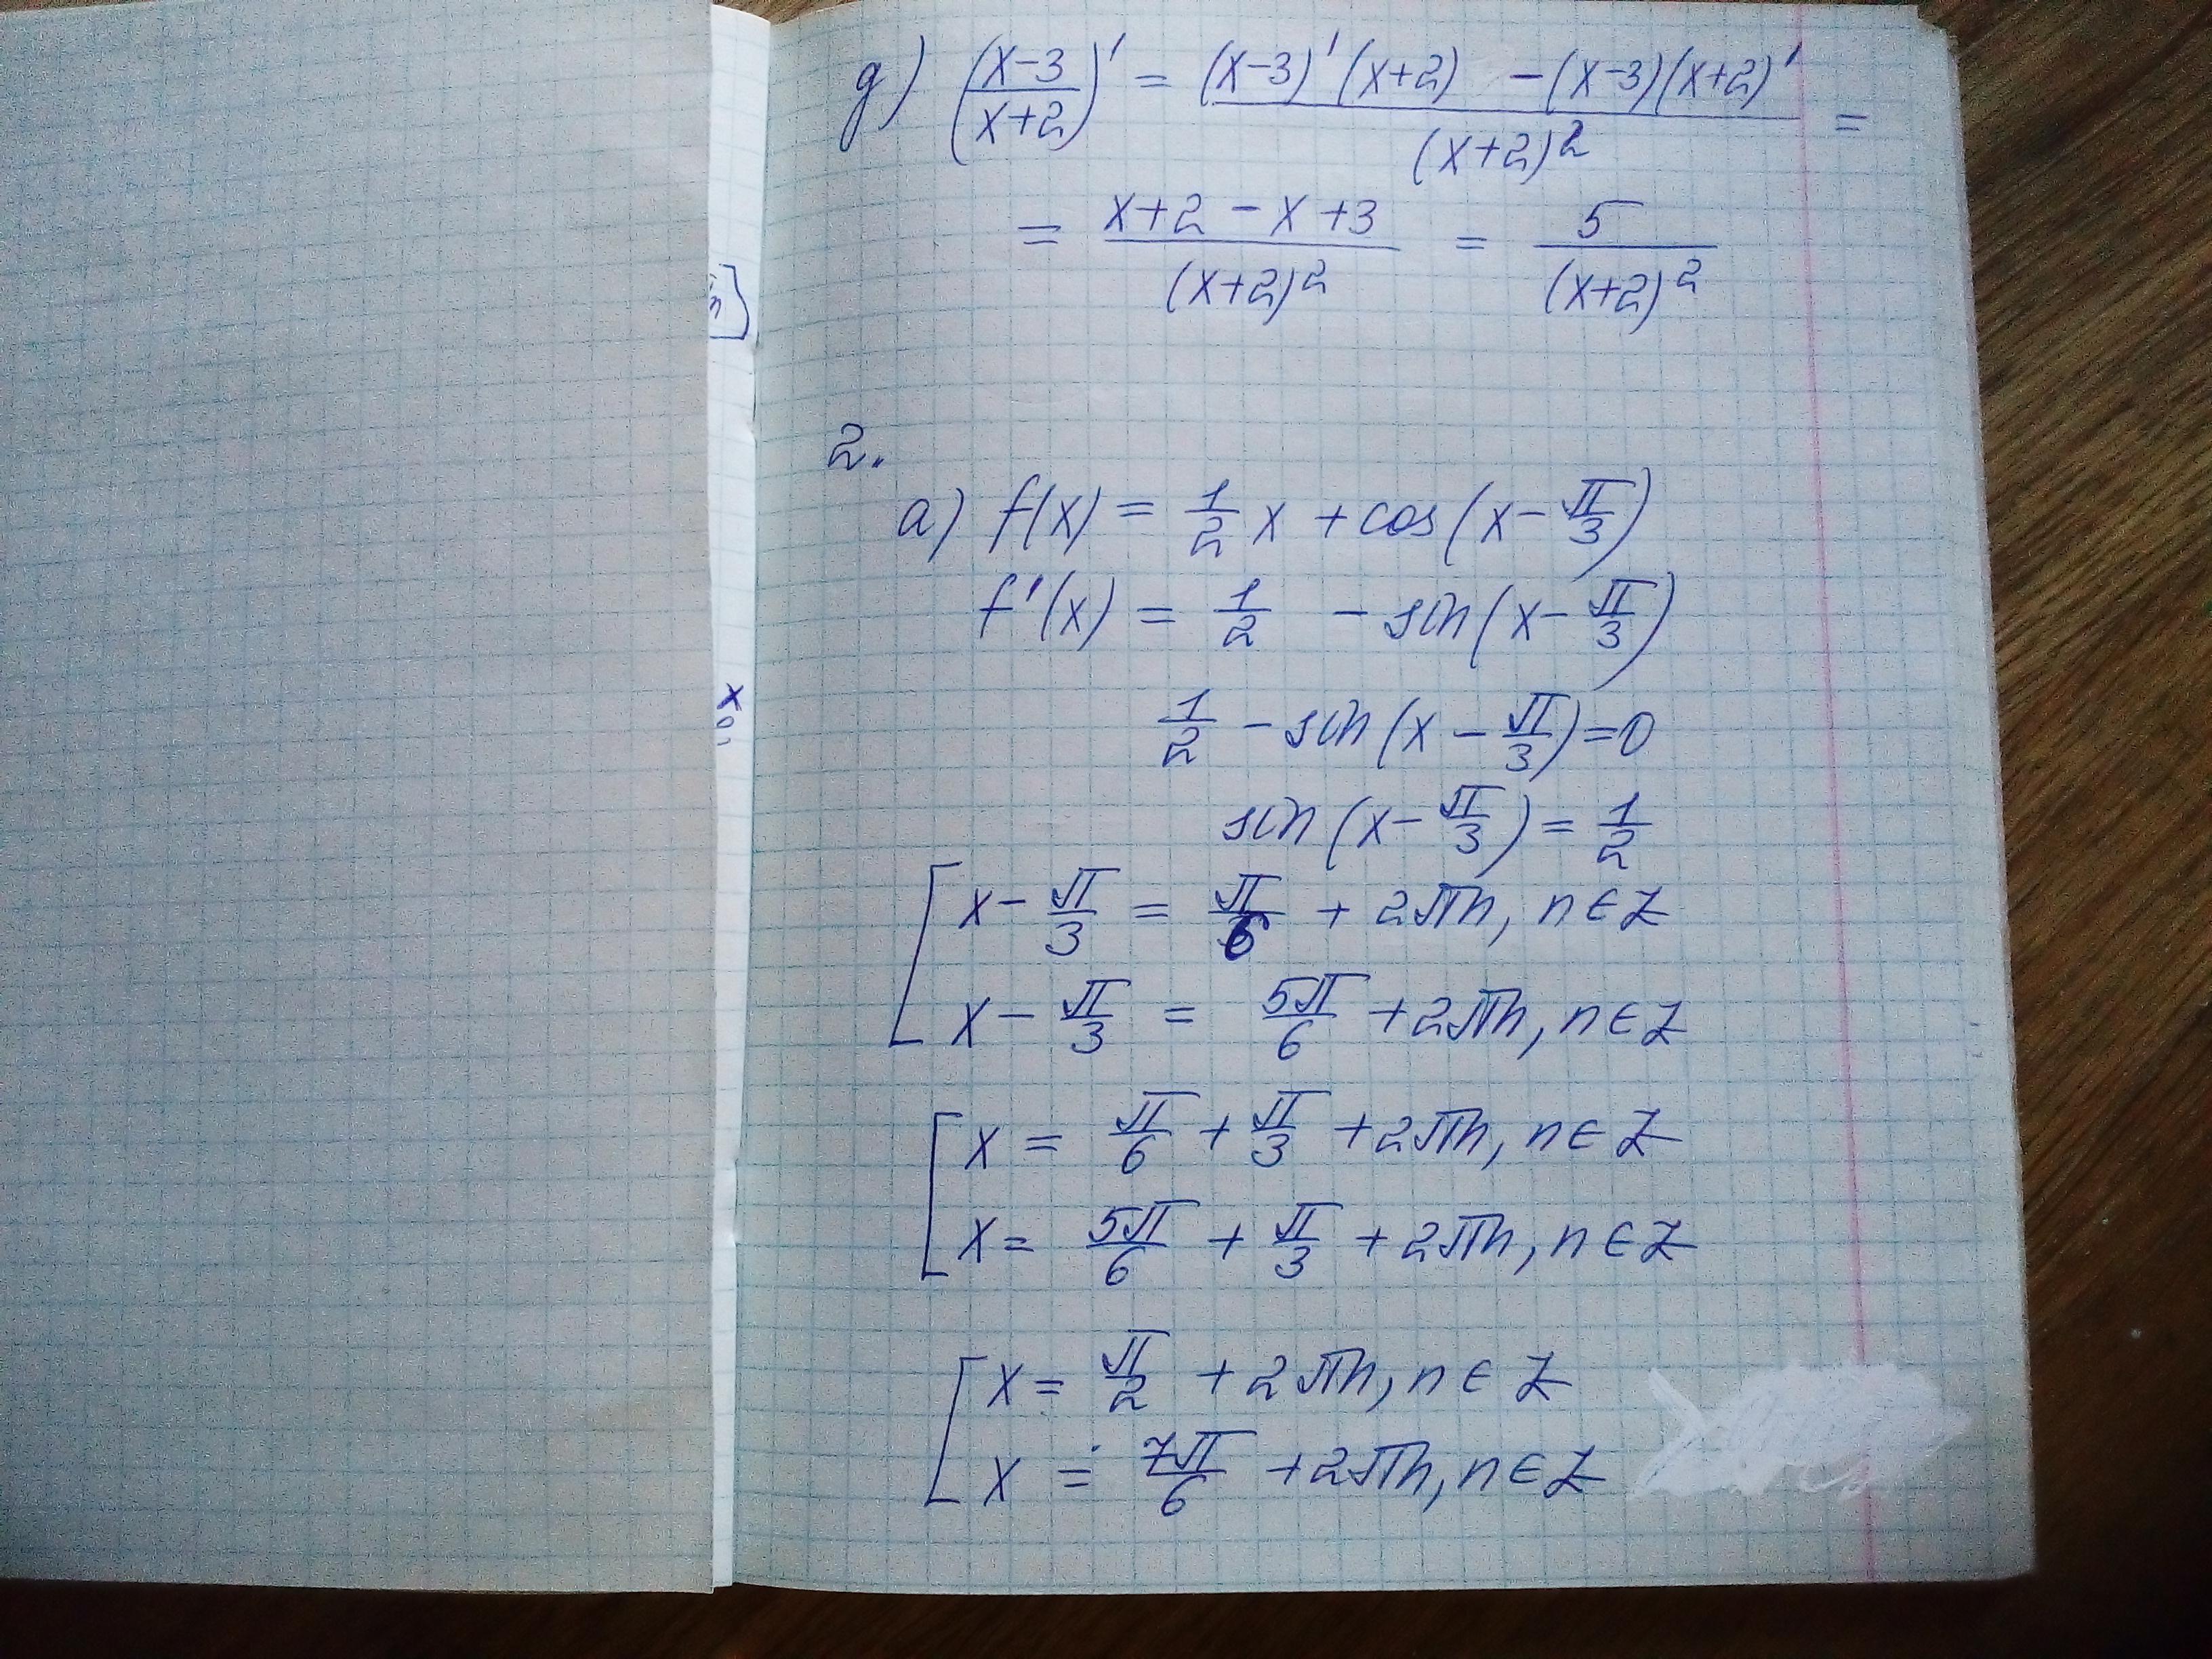 д) ((x-3)/(x+2))' = ((x-3)'(x+2) - (x-3)(x+2)')/(x+2)² =
= (x+2-x+3)/(x+2)² = 5/(x+2)²
2.
а) f(x) = 1/2 x + cos(x - π/3)
f'(x) = 1/2 - sin(x - π/3)
1/2 - sin(x - π/3) = 0
sin(x - π/3) = 1/2
[ x - π/3 = π/6 + 2πn, n∈Z
x - π/3 = 5π/6 + 2πn, n∈Z
[ x = π/6 + π/3 + 2πn, n∈Z
x = 5π/6 + π/3 + 2πn, n∈Z
[ x = π/2 + 2πn, n∈Z
x = 7π/6 + 2πn, n∈Z